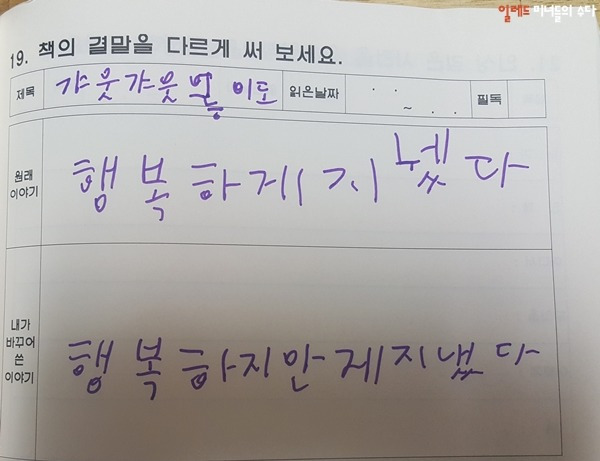 일레드 미녀들의 수다
19. 책의 결말을 다르게 써 보세요.
제목 갸웃갸웃 이도 읽은날짜 . . ~ . . 필독
원래
이야기
행복하게 지넸다
내가
바꾸어
쓴
이야기
행복하지안게지냈다